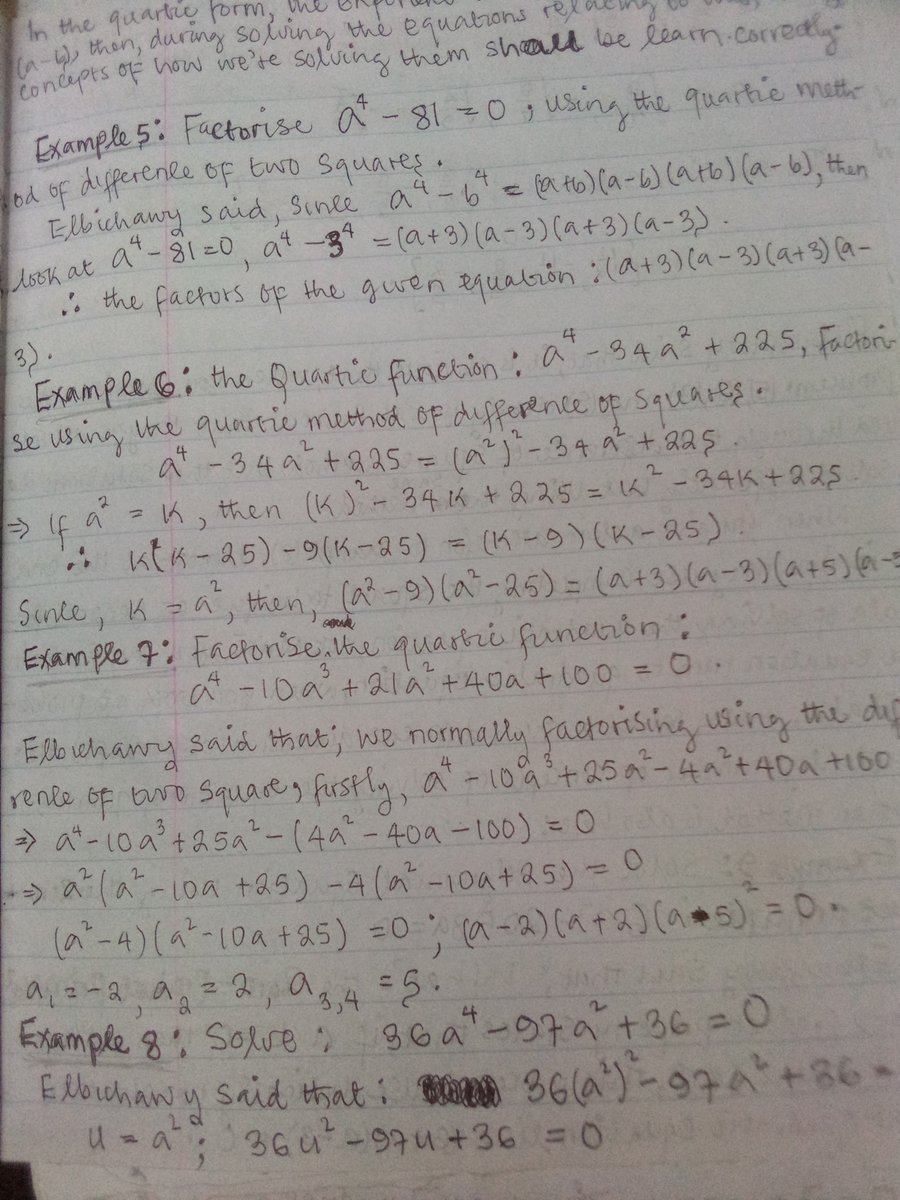 In the quartic form, the
(a-b), then, during solving the equations relating to
concepts of how we're solving them shall be learn correctly.
Example 5: Factorise a⁴ - 81 = 0; using the quartic meth-
od of difference of two squares.
Elbichawy said, since a⁴ - b⁴ = (a+b)(a-b)(a+b)(a-b), then
look at a⁴ - 81 = 0, a⁴ - 3⁴ = (a+3)(a-3)(a+3)(a-3).
∴ the factors of the given equation: (a+3)(a-3)(a+3)(a-
3).
Example 6: the Quartic function: a⁴ - 34a² + 225, Factori-
se using the quartic method of difference of squares.
a⁴ - 34a² + 225 = (a²)² - 34a² + 225.
⇒ If a² = K, then (K)² - 34K + 225 = K² - 34K + 225.
∴ K(K - 25) - 9(K - 25) = (K - 9)(K - 25).
Since, K = a², then, (a² - 9)(a² - 25) = (a+3)(a-3)(a+5)(a-
Example 7: Factorise the quartic function:
a⁴ - 10a³ + 21a² + 40a + 100 = 0.
Elbichawy said that; we normally factorising using the dif
rence of two square, firstly, a⁴ - 10a³ + 25a² - 4a² + 40a + 100
⇒ a⁴ - 10a³ + 25a² - (4a² - 40a - 100) = 0
⇒ a²(a² - 10a + 25) - 4(a² - 10a + 25) = 0
(a² - 4)(a² - 10a + 25) = 0; (a - 2)(a + 2)(a - 5)² = 0.
a₁ = -2, a₂ = 2, a₃,₄ = 5.
Example 8: Solve: 36a⁴ - 97a² + 36 = 0
Elbichawy said that: 36(a²)² - 97a² + 36 =
u = a²; 36u² - 97u + 36 = 0